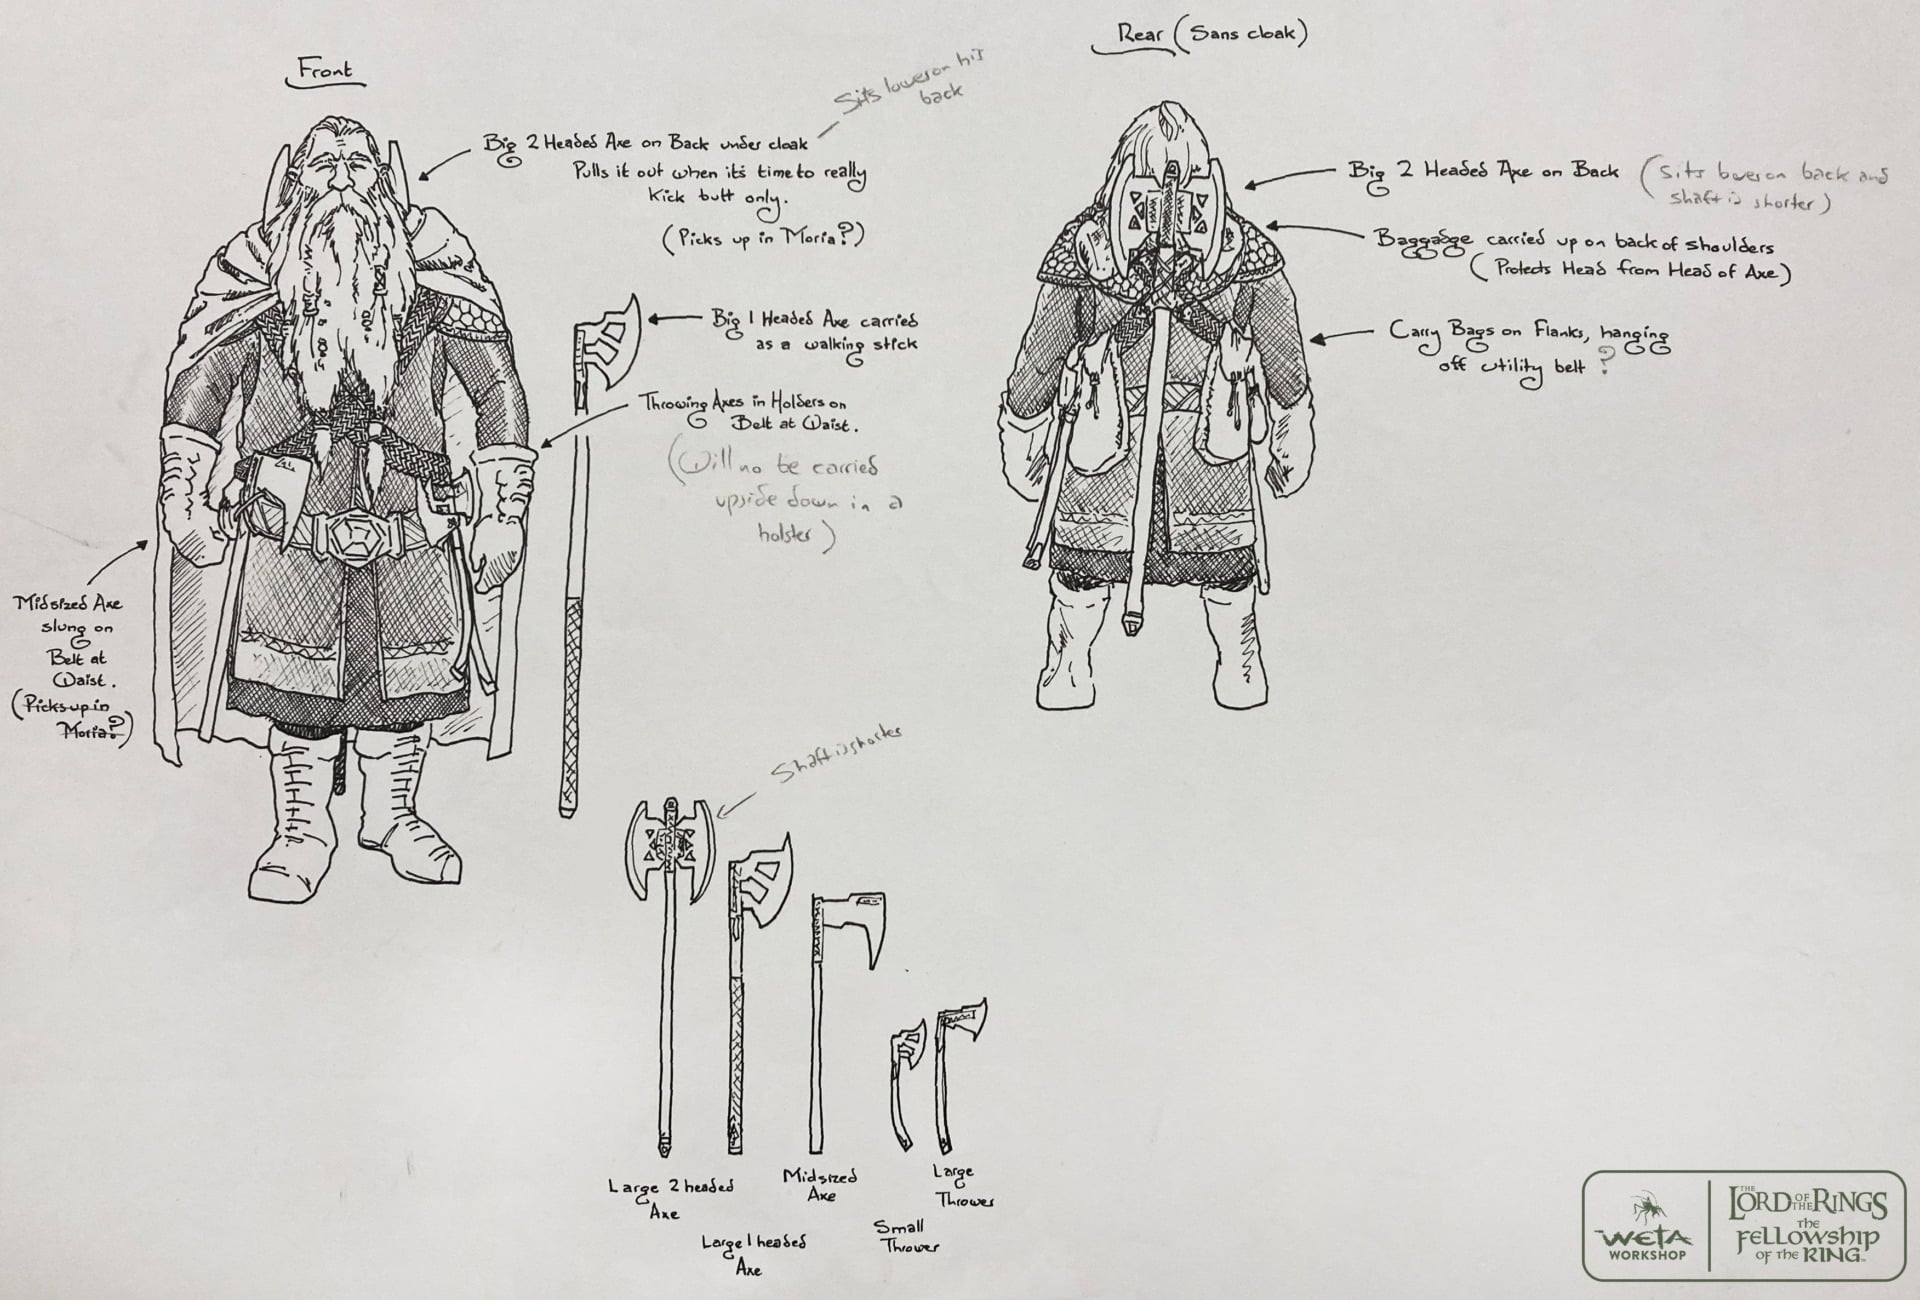 Front
Rear (Sans cloak)
Sits lower on his
back
Big 2 Headed Axe on Back under cloak
Pulls it out when its time to really
Kick butt only.
(Picks up in Moria?)
Big 2 Headed Axe on Back
(Sits lower on back and
shaft is shorter)
Baggadge carried up on back of shoulders
(Protects Head from Head of Axe)
Big 1 Headed Axe carried
as a walking stick
Carry Bags on Flanks, hanging
off utility belt ?
Throwing Axes in Holders on
Belt at Waist.
(Will no be carried
upside down in a
holster)
Midsized Axe
slung on
Belt at
Waist.
(Picks up in
Moria?)
Shaft is shorter
Large 2 headed
Axe
Large 1 headed
Axe
Midsized
Axe
Small
Thrower
Large
Thrower
WETA
WORKSHOP
THE
LORD OF THE RINGS
THE
FELLOWSHIP
OF THE RING™